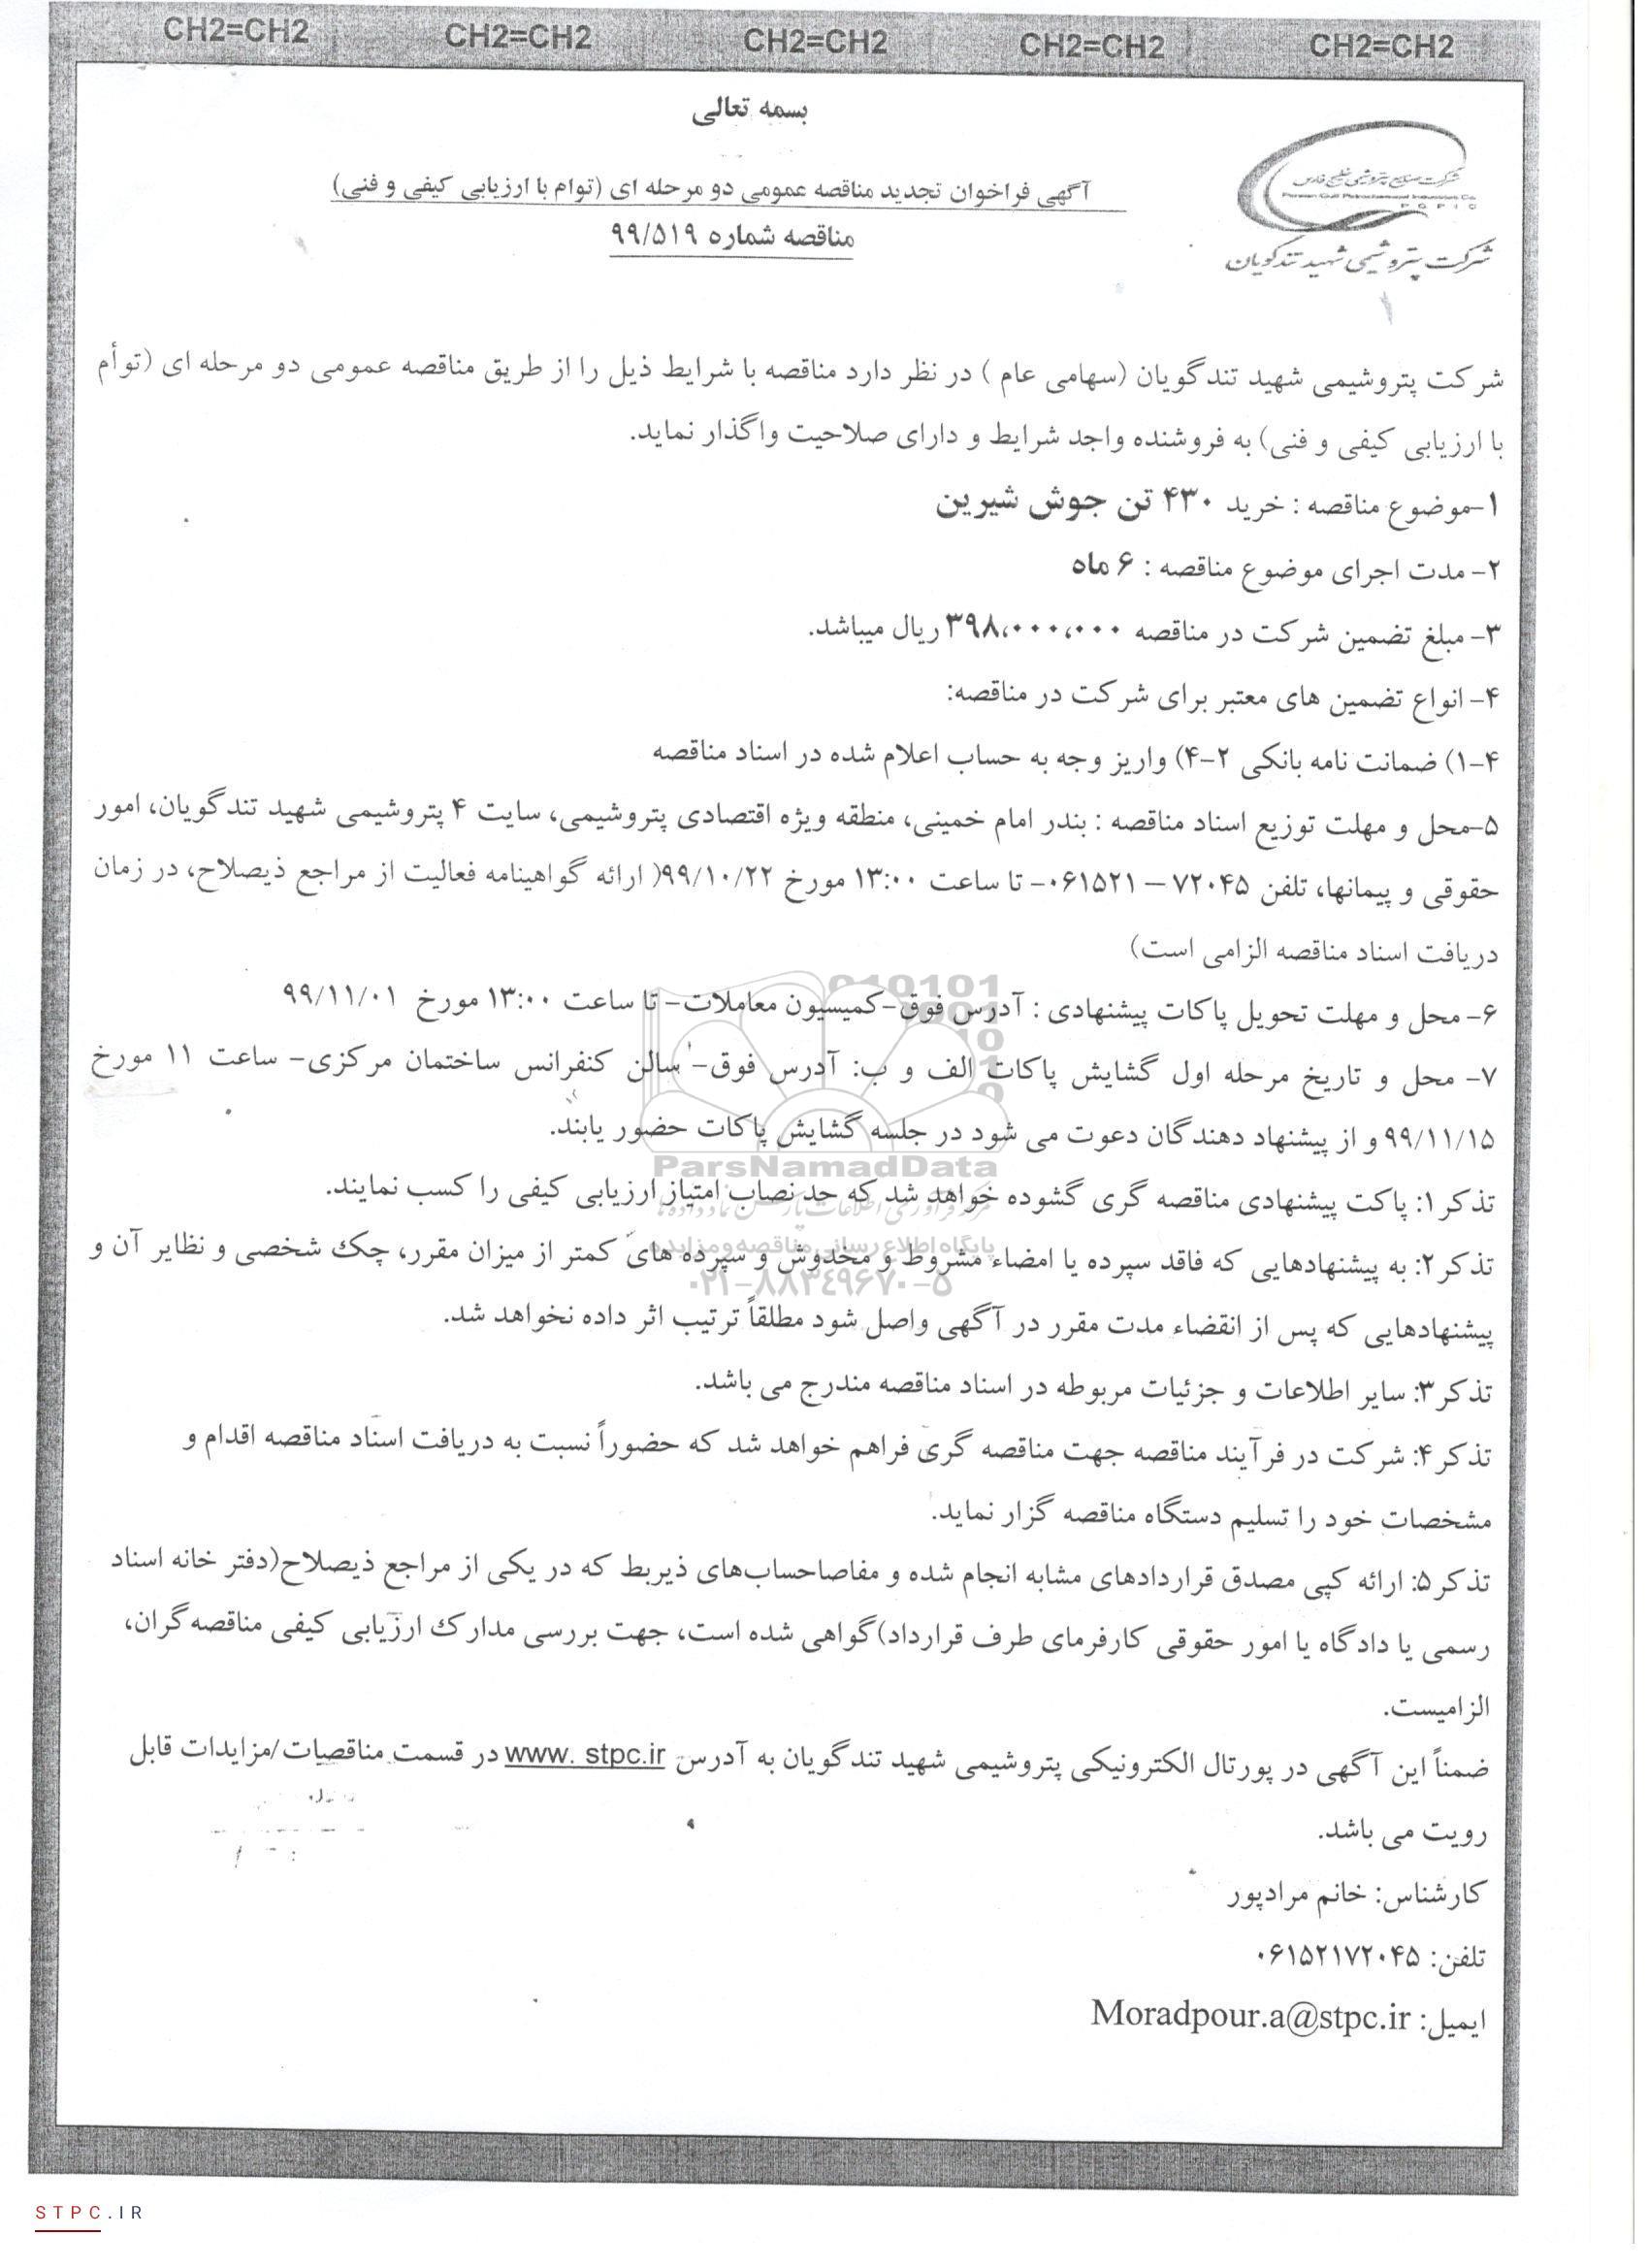 CH2=CH2 CH2=CH2 CH2=CH2 CH2=CH2 CH2=CH2
بسمه تعالی
شرکت صنایع پتروشیمی خلیج فارس
Persian Gulf Petrochemical Industries Co.
P G P I C
شرکت پتروشیمی شهید تندگویان
آگهی فراخوان تجدید مناقصه عمومی دو مرحله ای (توام با ارزیابی کیفی و فنی)
مناقصه شماره ۹۹/۵۱۹
شرکت پتروشیمی شهید تندگویان (سهامی عام ) در نظر دارد مناقصه با شرایط ذیل را از طریق مناقصه عمومی دو مرحله ای (توأم
با ارزیابی کیفی و فنی) به فروشنده واجد شرایط و دارای صلاحیت واگذار نماید.
۱-موضوع مناقصه : خرید ۴۳۰ تن جوش شیرین
۲- مدت اجرای موضوع مناقصه : ۶ ماه
۳- مبلغ تضمین شرکت در مناقصه ۳۹۸،۰۰۰،۰۰۰ ریال میباشد.
۴- انواع تضمین های معتبر برای شرکت در مناقصه:
۴-۱) ضمانت نامه بانکی ۲-۴) واریز وجه به حساب اعلام شده در اسناد مناقصه
۵-محل و مهلت توزیع اسناد مناقصه : بندر امام خمینی، منطقه ویژه اقتصادی پتروشیمی، سایت ۴ پتروشیمی شهید تندگویان، امور
حقوقی و پیمانها، تلفن ۷۲۰۴۵ – ۰۶۱۵۲۱- تا ساعت ۱۳:۰۰ مورخ ۹۹/۱۰/۲۲( ارائه گواهینامه فعالیت از مراجع ذیصلاح، در زمان
دریافت اسناد مناقصه الزامی است)
۶- محل و مهلت تحویل پاکات پیشنهادی : آدرس فوق-کمیسیون معاملات- تا ساعت ۱۳:۰۰ مورخ ۹۹/۱۱/۰۱
۷- محل و تاریخ مرحله اول گشایش پاکات الف و ب: آدرس فوق- سالن کنفرانس ساختمان مرکزی- ساعت ۱۱ مورخ
۹۹/۱۱/۱۵ و از پیشنهاد دهندگان دعوت می شود در جلسه گشایش پاکات حضور یابند.
ParsNamadData
تذکر ۱: پاکت پیشنهادی مناقصه گری گشوده خواهد شد که حد نصاب امتیاز ارزیابی کیفی را کسب نمایند.
مرکز فرآوری اطلاعات پارس نماد داده ها
پایگاه اطلاع رسانی مناقصه و مزایده
تذکر ۲: به پیشنهادهایی که فاقد سپرده یا امضاء مشروط و مخدوش و سپرده های کمتر از میزان مقرر، چک شخصی و نظایر آن و
۰۲۱-۸۸۳۴۹۶۷۰-۵
پیشنهادهایی که پس از انقضاء مدت مقرر در آگهی واصل شود مطلقاً ترتیب اثر داده نخواهد شد.
تذکر ۳: سایر اطلاعات و جزئیات مربوطه در اسناد مناقصه مندرج می باشد.
تذکر ۴: شرکت در فرآیند مناقصه جهت مناقصه گری فراهم خواهد شد که حضوراً نسبت به دریافت اسناد مناقصه اقدام و
مشخصات خود را تسلیم دستگاه مناقصه گزار نماید.
تذکر ۵: ارائه کپی مصدق قراردادهای مشابه انجام شده و مفاصاحساب‌های ذیربط که در یکی از مراجع ذیصلاح(دفتر خانه اسناد
رسمی یا دادگاه یا امور حقوقی کارفرمای طرف قرارداد)گواهی شده است، جهت بررسی مدارک ارزیابی کیفی مناقصه‌گران،
الزامیست.
ضمناً این آگهی در پورتال الکترونیکی پتروشیمی شهید تندگویان به آدرس www. stpc.ir در قسمت مناقصات/مزایدات قابل
رویت می باشد.
کارشناس: خانم مرادپور
تلفن: ۰۶۱۵۲۱۷۲۰۴۵
ایمیل: Moradpour.a@stpc.ir
STPC.IR